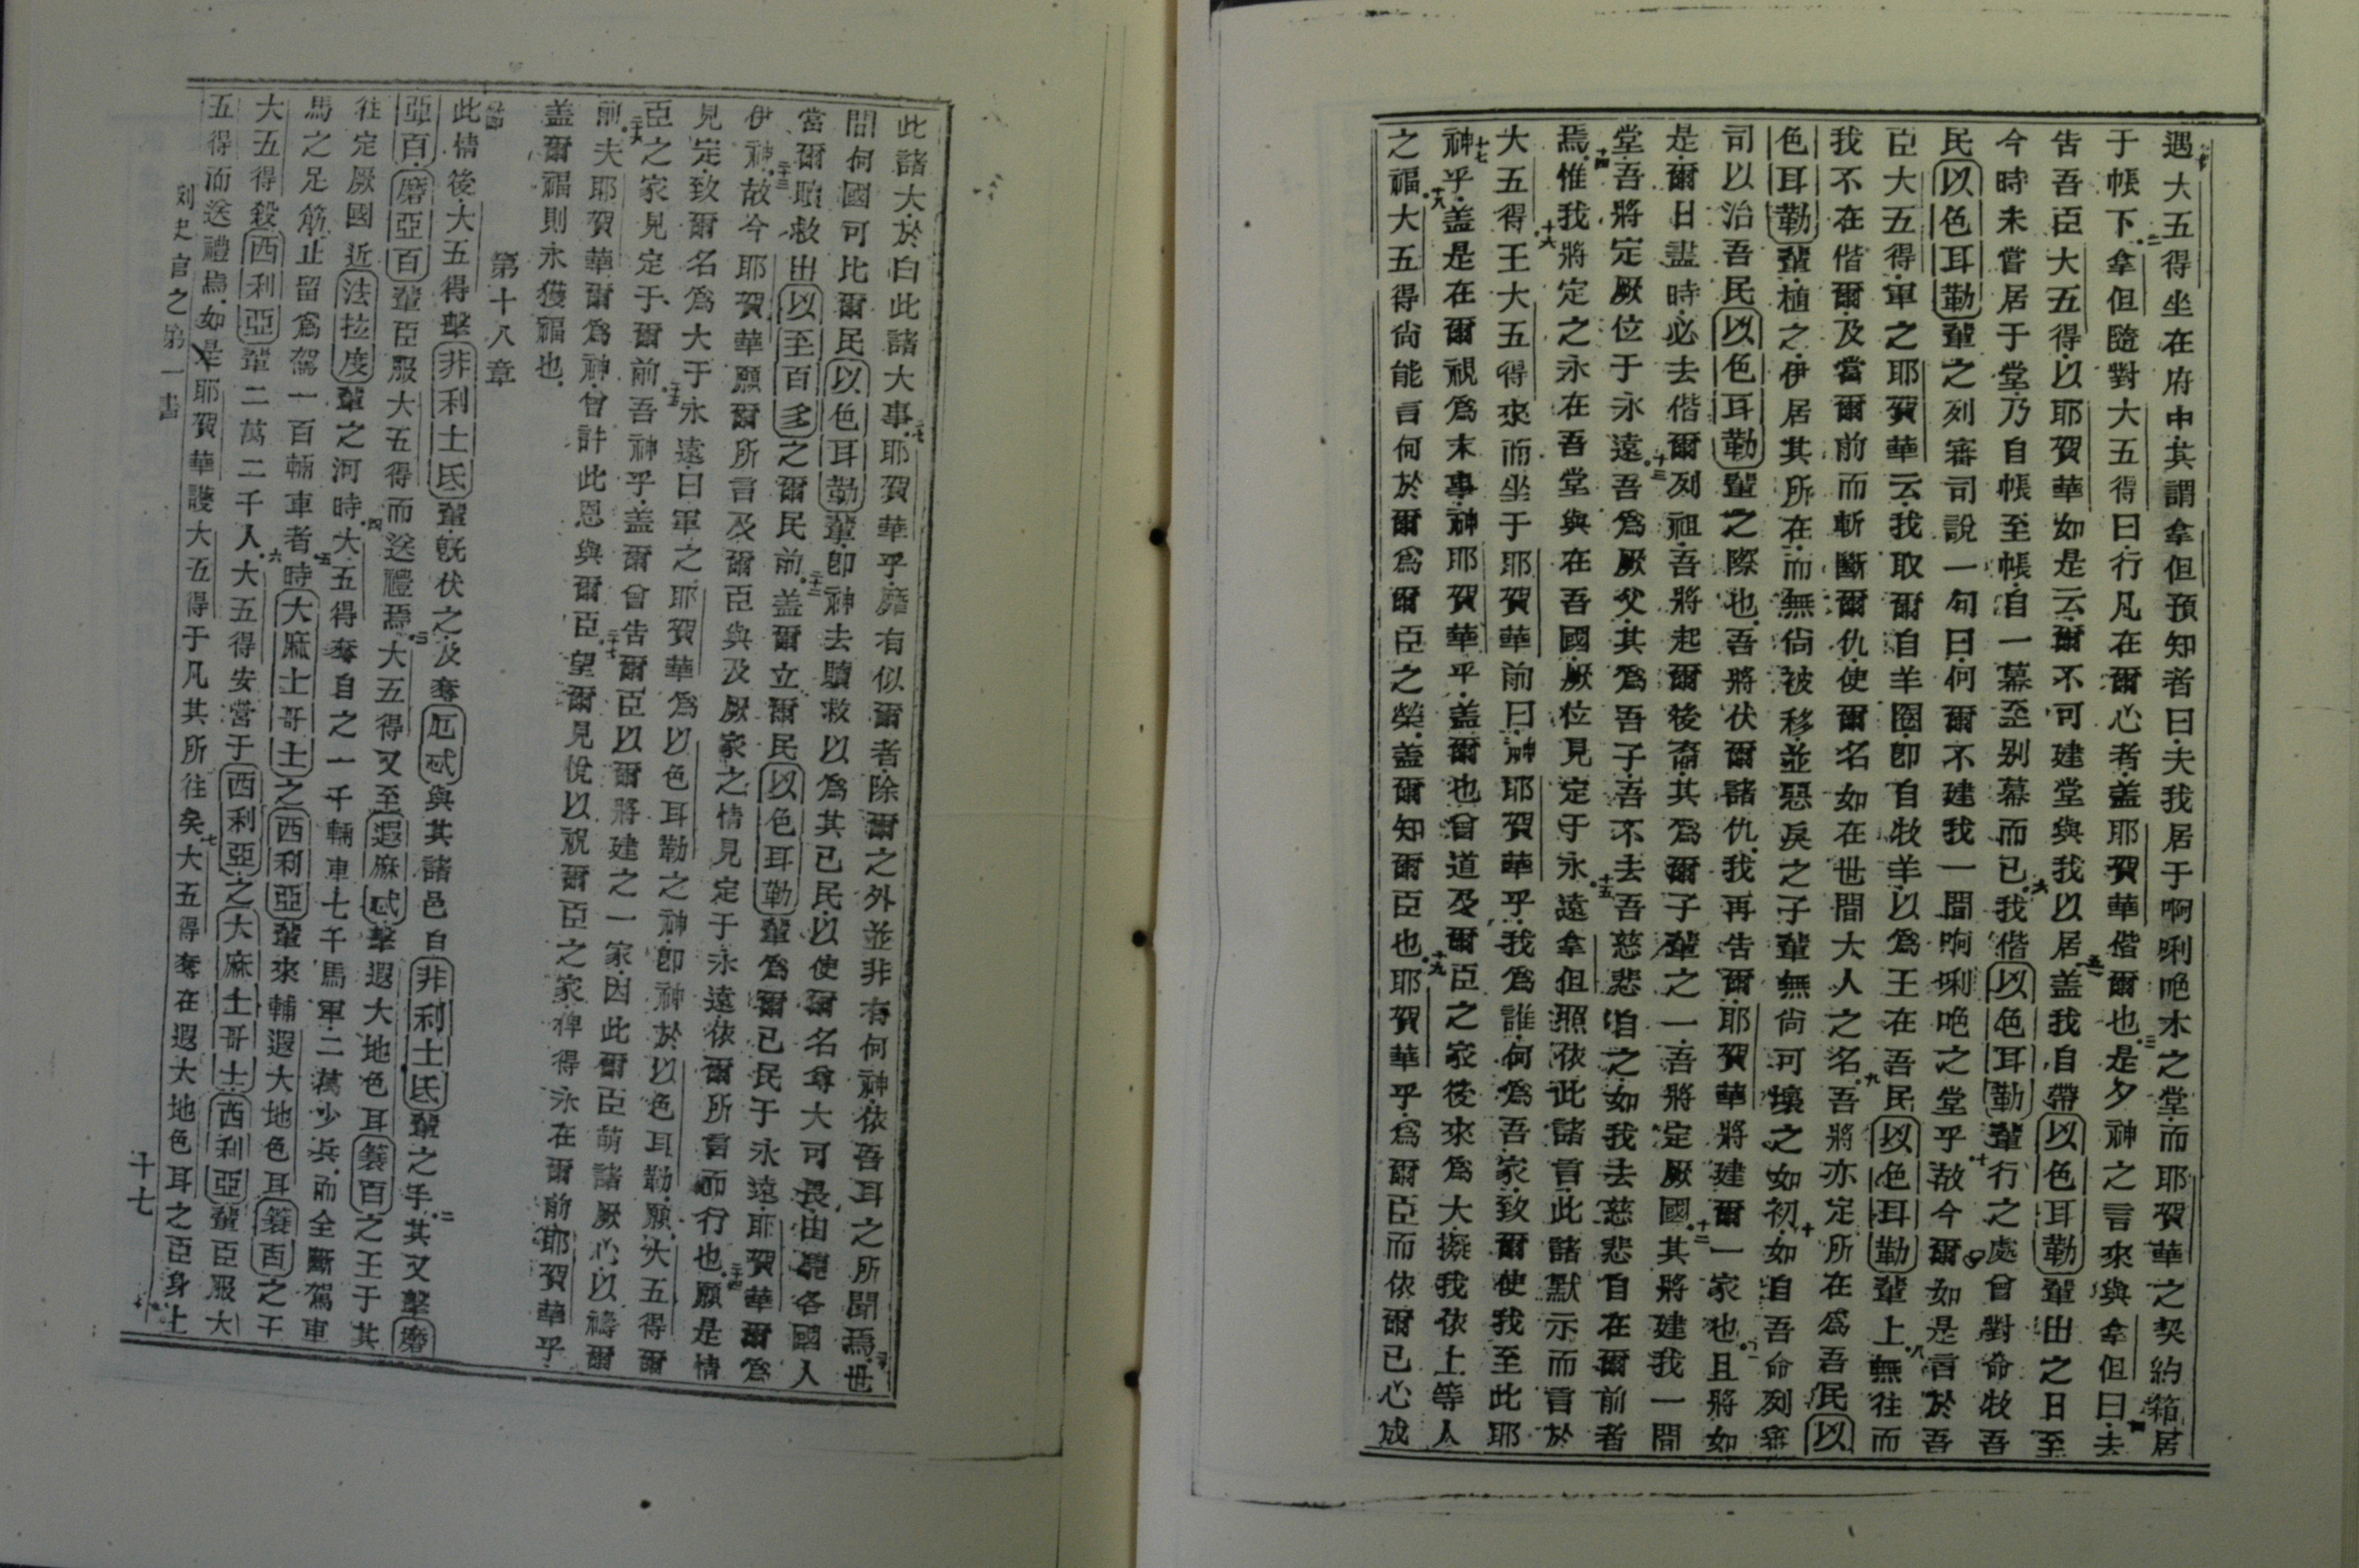 遇大五得坐在府中其謂拿但預知者曰夫我居于啊唎吔木之堂而耶賀華之契約箱居
于帳下二拿但隨對大五得曰行凡在爾心者盖耶賀華偕爾也三是夕神之言來與拿但曰四去
告吾臣大五得以耶賀華如是云爾不可建堂與我以居五盖我自帶以色耳勒輩出之日至
今時未嘗居于堂乃自帳至帳自一幕至别幕而已六我偕以色耳勒輩行之處曾對命牧吾
民以色耳勒輩之列審司說一句曰何爾不建我一間啊唎吔之堂乎七故今爾如是言於吾
臣大五得軍之耶賀華云我取爾自羊圈卽自牧羊以爲王在吾民以色耳勒輩上八無往而
我不在偕爾及當爾前而斬斷爾仇使爾名如在世間大人之名九吾將亦定所在爲吾民以
色耳勒輩植之伊居其所在而無尙被移並惡戾之子輩無尙可壞之如初十如自吾命列審
司以治吾民以色耳勒輩之際也吾將伏爾諸仇我再告爾耶賀華將建爾一家也十一且將如
是爾日盡時必去偕爾列祖吾將起爾後裔其爲爾子輩之一吾將定厥國十二其將建我一間
堂吾將定厥位于永遠十三吾爲厥父其爲吾子吾不去吾慈悲自之如我去慈悲自在爾前者
焉十四惟我將定之永在吾堂與在吾國厥位見定于永遠十五拿但照依此諸言此諸默示而言於
大五得十六王大五得來而坐于耶賀華前曰神耶賀華乎我爲誰何爲吾家致爾使我至此耶
神乎十七盖是在爾視爲末事神耶賀華乎盖爾也曾道及爾臣之家後來爲大擬我依上等人
之福十八大五得尙能言何於爾爲爾臣之榮盖爾知爾臣也十九耶賀華乎爲爾臣而依爾已心成
此諸大於白此諸大事二十耶賀華乎靡有似爾者除爾之外並非有何神依吾耳之所聞焉世
間何國可比爾民以色耳勒輩卽神去贖救以爲其已民以使爾名尊大可畏由攆各國人
當爾贖救出以至百多之爾民前二十二盖爾立爾民以色耳勒輩爲爾已民于永遠耶賀華爾爲
伊神二十三故今耶賀華願爾所言及爾臣與及厥家之情見定于永遠依爾所言而行也二十四願是情
見定致爾名爲大于永遠曰軍之耶賀華爲以色耳勒之神卽神於以色耳勒願大五得爾
臣之家見定于爾前二十五吾神乎盖爾曾告爾臣以爾將建之一家因此爾臣萌諸厥心以禱爾
前二十六夫耶賀華爾爲神曾許此恩與爾臣二十七望爾見悅以祝爾臣之家俾得永在爾前耶賀華乎
盖爾福則永獲福也
第十八章
此情後大五得擊非利士氐輩旣伏之及奪厄忒與其諸邑自非利士氐輩之手二其又擊磨
亞百磨亞百輩臣服大五得而送禮焉三大五得又至遐麻忒擊遐大地色耳簑百之王于其
往定厥國近法拉度輩之河時四大五得奪自之一千輛車七千馬軍二萬步兵而全斷駕車
馬之足筋止留爲駕一百輛車者五時大麻士哥士之西利亞輩來輔遐大地色耳簑百之王
大五得殺西利亞輩二萬二千人六大五得安營于西利亞之大麻士哥士西利亞輩臣服大
五得而送禮焉如是耶賀華護大五得于凡其所往矣七大五得奪在遐大地色耳之臣身上
列史官之第一書
十七